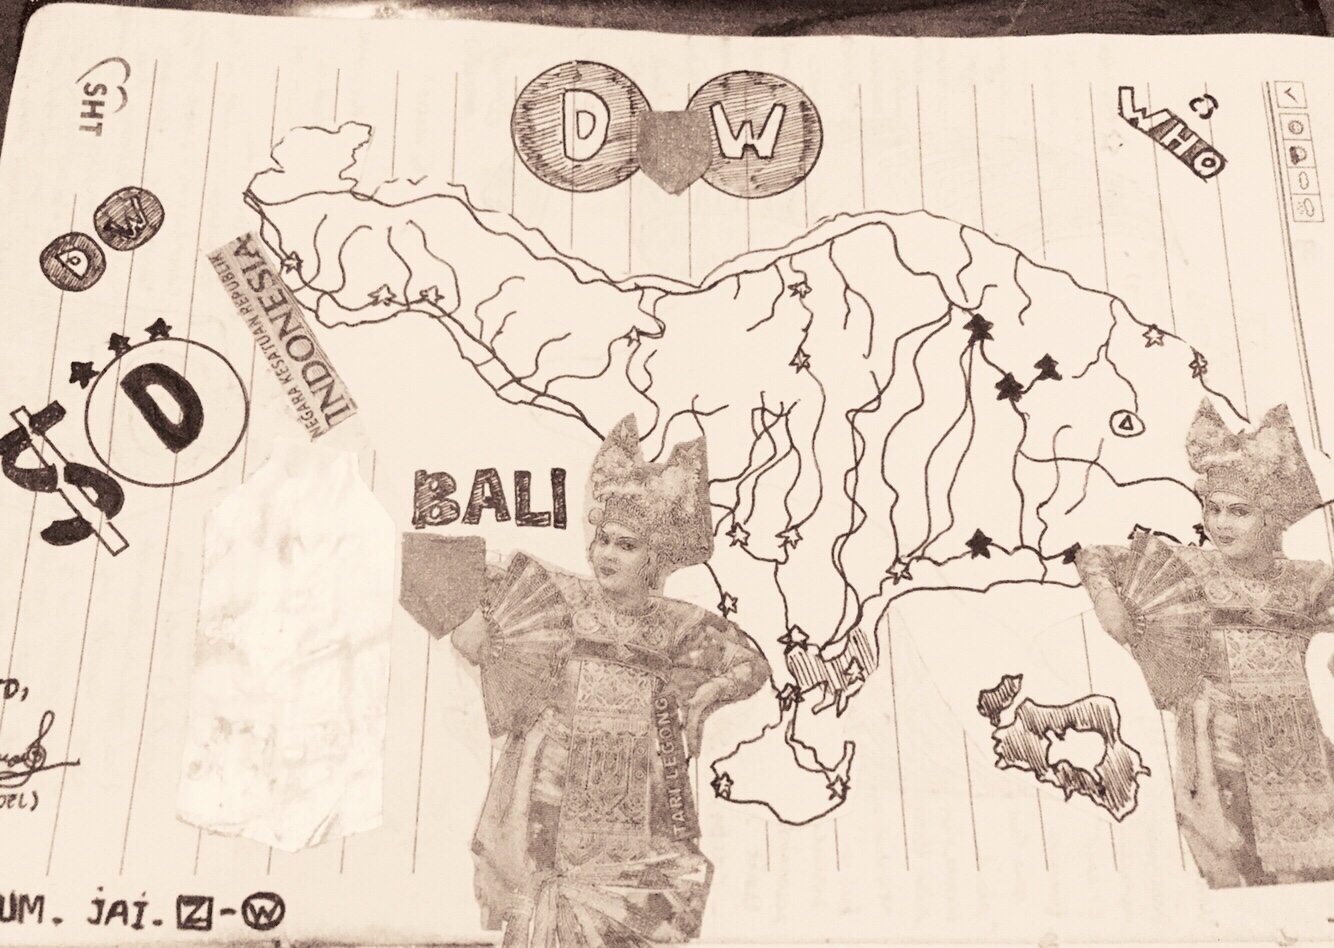 SHT
D W
WHO
D W
NEGARA KESATUAN REPUBLIK
INDONESIA
D
BALI
TARI LEGONG
UM. JAI. Z-W